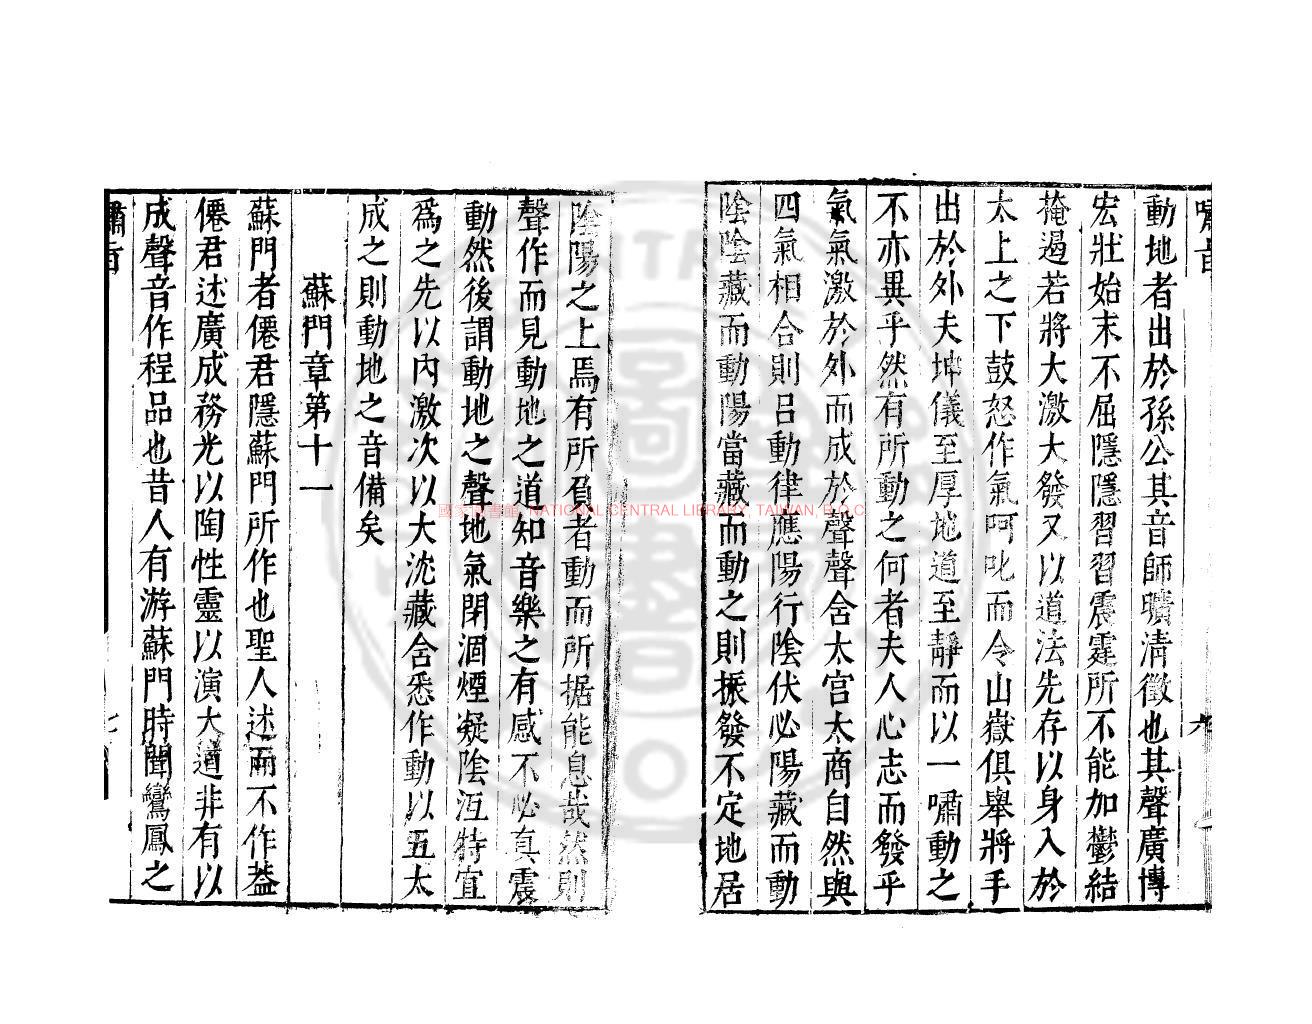 嘯旨
六
動地者出於孫公其音師曠清徵也其聲廣博
宏壯始末不屈隱隱習習震霆所不能加鬱結
掩遏若將大激大發又以道法先存以身入於
太上之下鼓怒作氣呵叱而令山嶽俱舉將手
出於外夫坤儀至厚地道至靜而以一嘯動之
不亦異乎然有所動之何者夫人心志而發乎
氣氣激於外而成於聲聲舍太宮太商自然與
四氣相合則呂動律應陽行陰伏必陽藏而動
陰陰藏而動陽當藏而動之則振發不定地居
陰陽之上焉有所負者動而所据能息哉然則
聲作而見動地之道知音樂之有感不必真震
動然後謂動地之聲地氣閉涸煙凝陰沍特宜
為之先以內激次以大沈藏舍悉作動以五太
成之則動地之音備矣
蘇門章第十一
蘇門者僊君隱蘇門所作也聖人述而不作葢
僊君述廣成務光以陶性靈以演大道非有以
成聲音作程品也昔人有游蘇門時聞鸞鳳之
嘯旨
七
國家圖書館 NATIONAL CENTRAL LIBRARY, TAIWAN, R.O.C